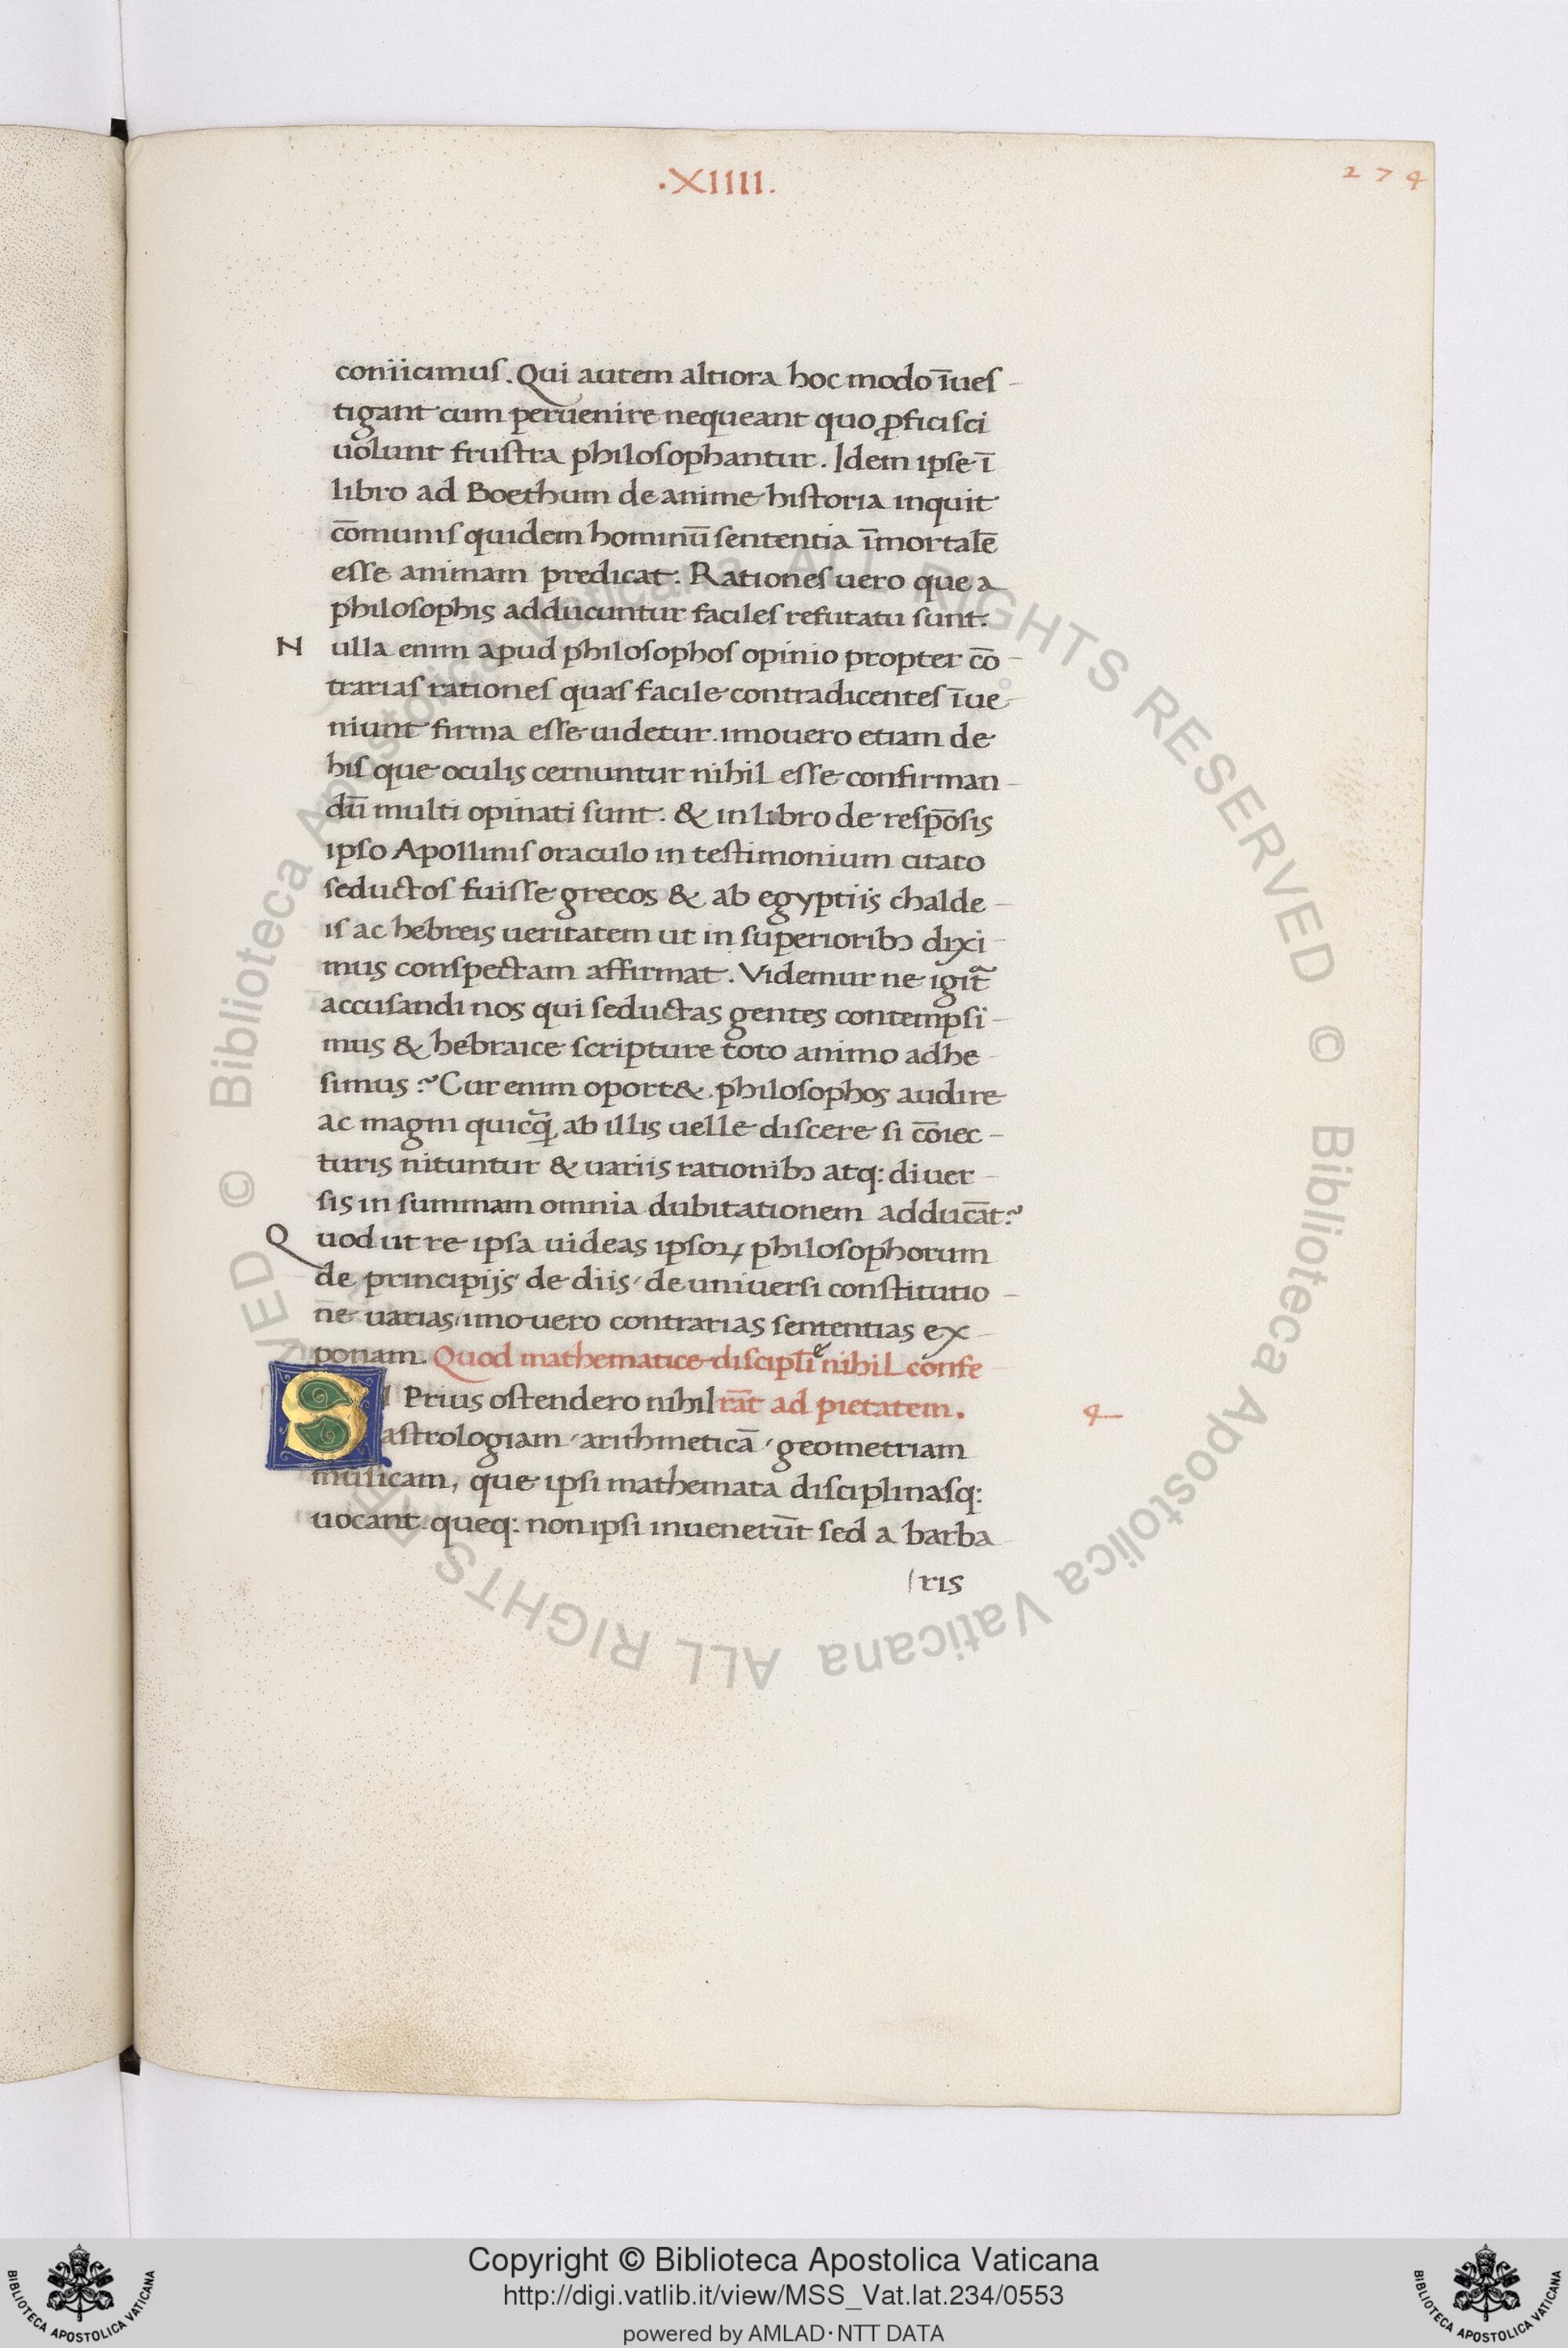 ·XIIII.
274
coniicimus. Qui autem altiora hoc modo īues-
tigant cum peruenire nequeant quo ꝓficisci
uolunt frustra philosophantur. Idem ipse ī
libro ad Boethum de anime historia inquit
cōmunis quidem hominū sententia īmortalē
esse animam predicat. Rationes uero que a
philosophis adducuntur faciles refutatu sunt.
Nulla enim apud philosophos opinio propter cō-
trarias rationes quas facile contradicentes īue-
niunt firma esse uidetur. imouero etiam de
his que oculis cernuntur nihil esse confirman-
dū multi opinati sunt. & in libro de respōsis
ipso Apollinis oraculo in testimonium citato
seductos fuisse grecos & ab egyptiis chalde-
is ac hebreis ueritatem ut in superioribꝰ dixi-
mus conspectam affirmat. Videmur ne igit᷑
accusandi nos qui seductas gentes contempsi-
mus & hebraice scripture toto animo adhe-
simus? Cur enim oport& philosophos audire
ac magni quicq̄ ab illis uelle discere si cōiec-
turis nituntur & uariis rationibꝰ atq: diuer-
sis in summam omnia dubitationem adducāt?
Quod ut re ipsa uideas ipsoꝝ philosophorum
de principijs / de diis / de uniuersi constitutio-
ne uarias / imo uero contrarias sententias ex-
ponam. Quod mathematice discipli̅e nihil confe-
SI Prius ostendero nihil rāt ad pietatem.
4
astrologiam / arithmeticā / geometriam
musicam, que ipsi mathemata disciplinasq:
uocant queq: non ipsi inuenerūt sed a barba-
ris
© Biblioteca Apostolica Vaticana ALL RIGHTS RESERVED © Biblioteca Apostolica Vaticana ALL RIGHTS RESERVED
Copyright © Biblioteca Apostolica Vaticana
http://digi.vatlib.it/view/MSS_Vat.lat.234/0553
powered by AMLAD·NTT DATA
BIBLIOTECA APOSTOLICA VATICANA
BIBLIOTECA APOSTOLICA VATICANA